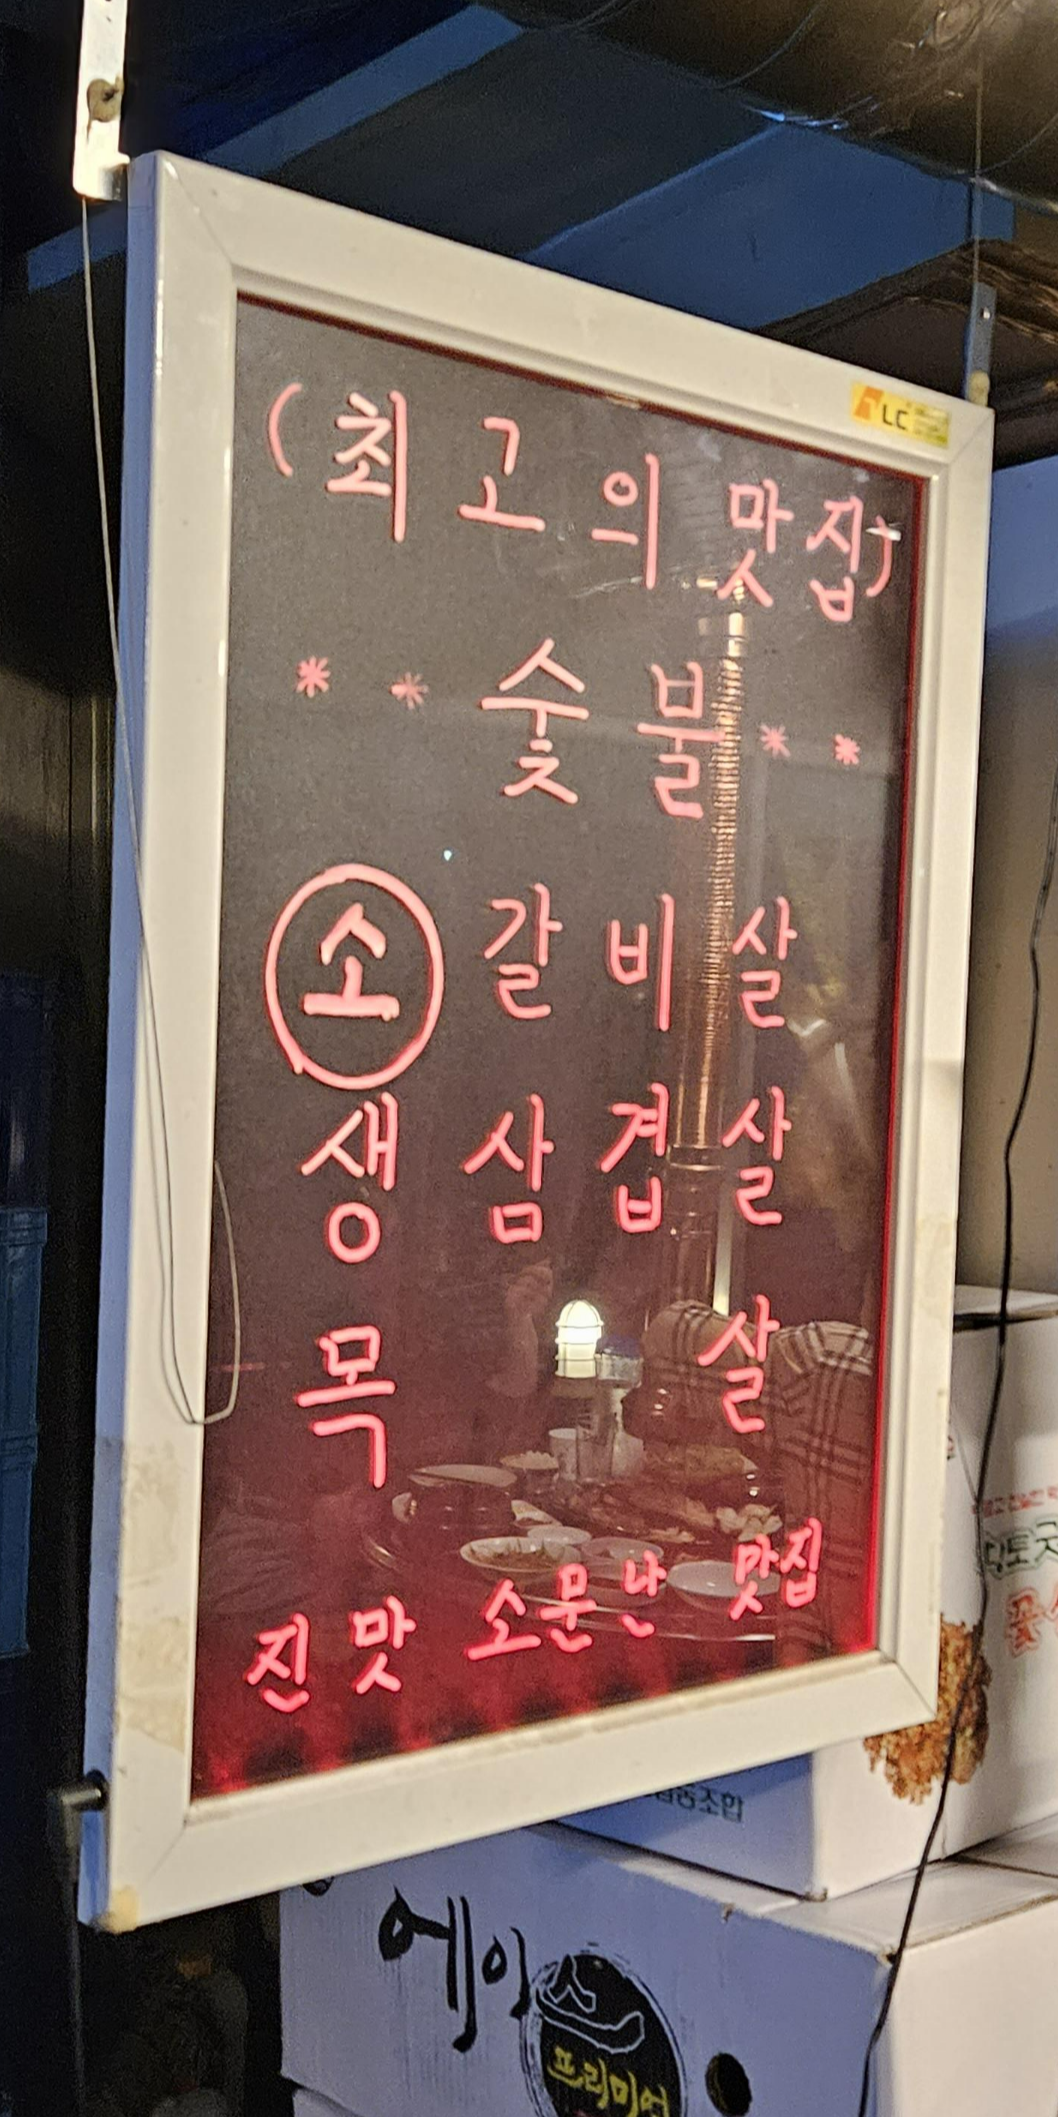 (최고의 맛집)
* * 숯불 * *
소 갈비살
생 삼겹살
목 살
진맛 소문난 맛집
LC
에이스
프리미엄